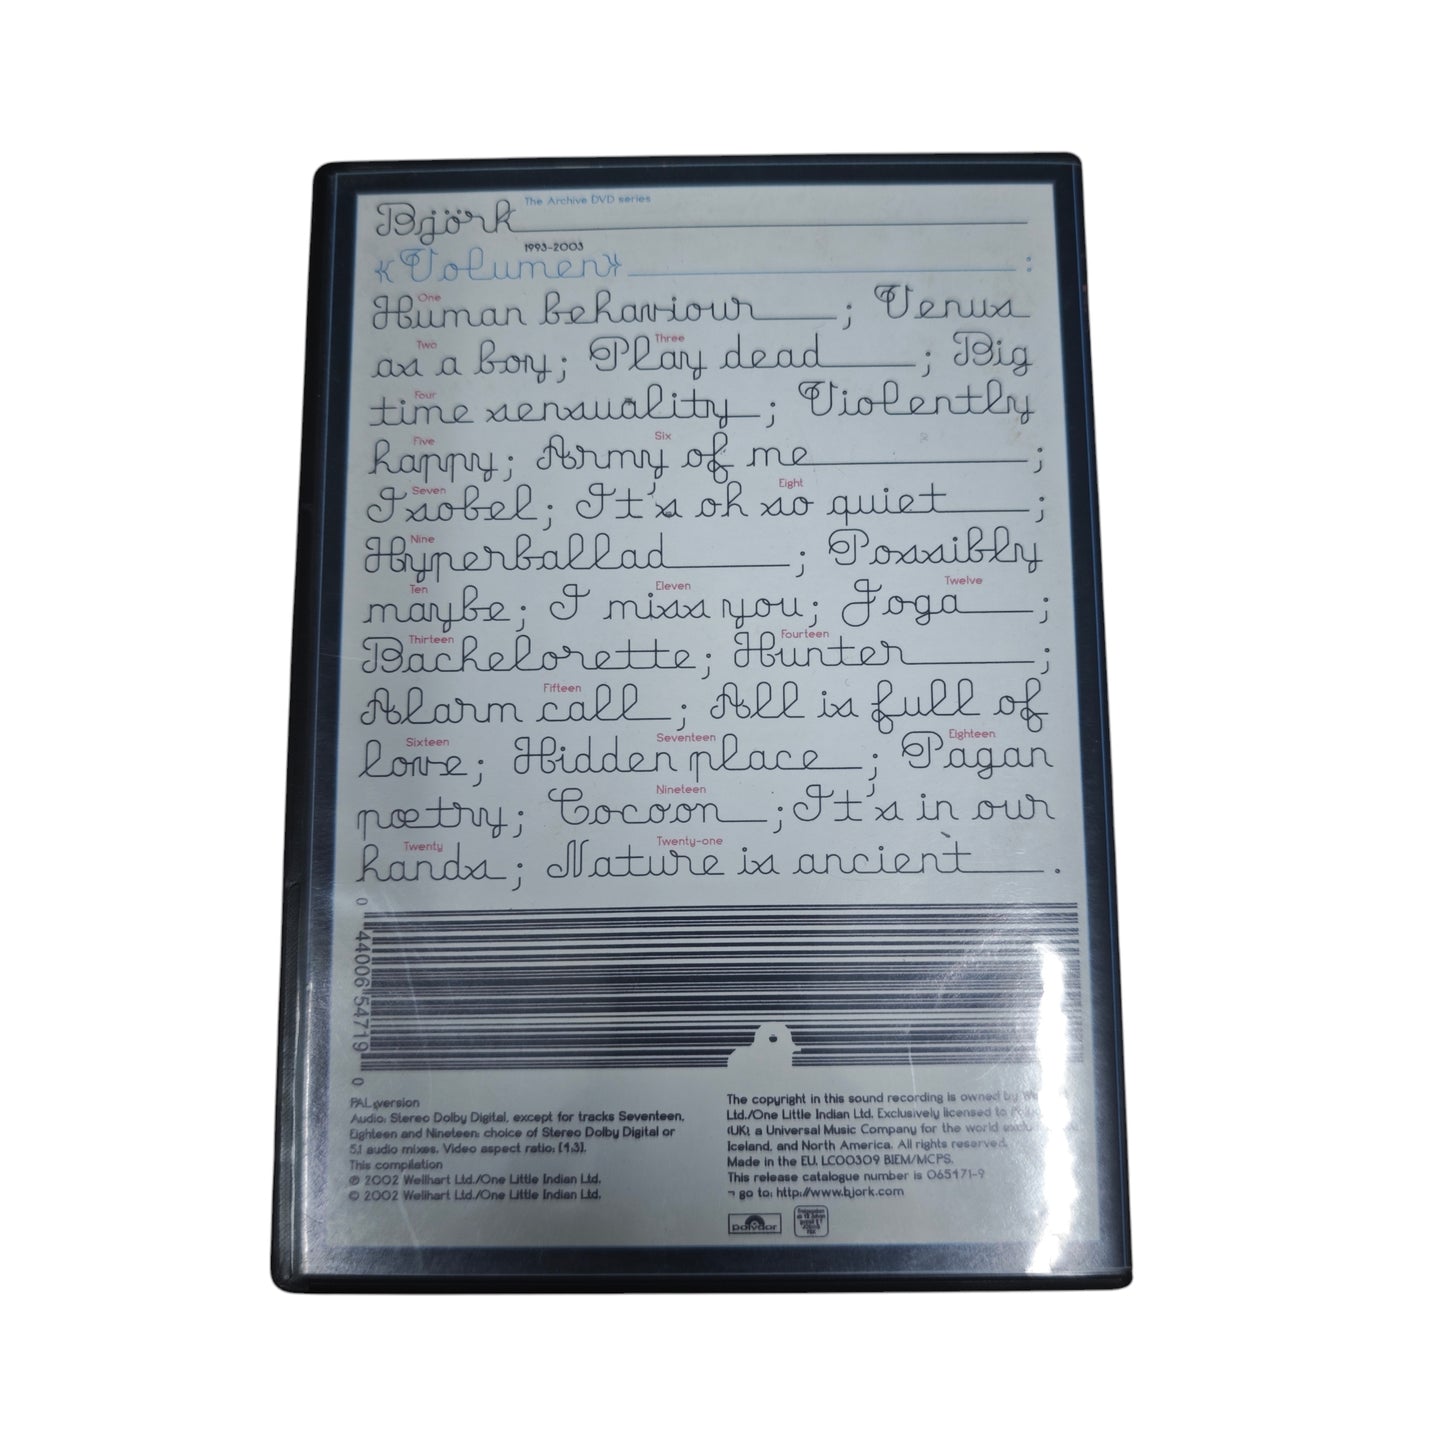 The Archive DVD series
Björk
1993-2003
«Volumen» :
One
Human behaviour ; Venus
Two Three
as a boy; Play dead ; Big
Four
time sensuality ; Violently
Five Six
happy; Army of me ;
Seven Eight
Isobel; It's oh so quiet ;
Nine
Hyperballad ; Possibly
Ten Eleven Twelve
maybe; I miss you; Joga ;
Thirteen Fourteen
Bachelorette; Hunter ;
Fifteen
Alarm call ; All is full of
Sixteen Seventeen Eighteen
love; Hidden place ; Pagan
Nineteen
pœtry; Cocoon ; It's in our
Twenty Twenty-one
hands ; Nature is ancient .
0 44006 54719 0
PAL version
Audio: Stereo Dolby Digital, except for tracks Seventeen,
Eighteen and Nineteen: choice of Stereo Dolby Digital or
5.1 audio mixes. Video aspect ratio: [4:3].
This compilation
℗ 2002 Wellhart Ltd./One Little Indian Ltd.
© 2002 Wellhart Ltd./One Little Indian Ltd.
The copyright in this sound recording is owned by
Ltd./One Little Indian Ltd. Exclusively licensed to
(UK), a Universal Music Company for the world
Iceland, and North America. All rights reserved.
Made in the EU. LC00309 BIEM/MCPS.
This release catalogue number is 065471-9
¬ go to: http://www.bjork.com
polydor